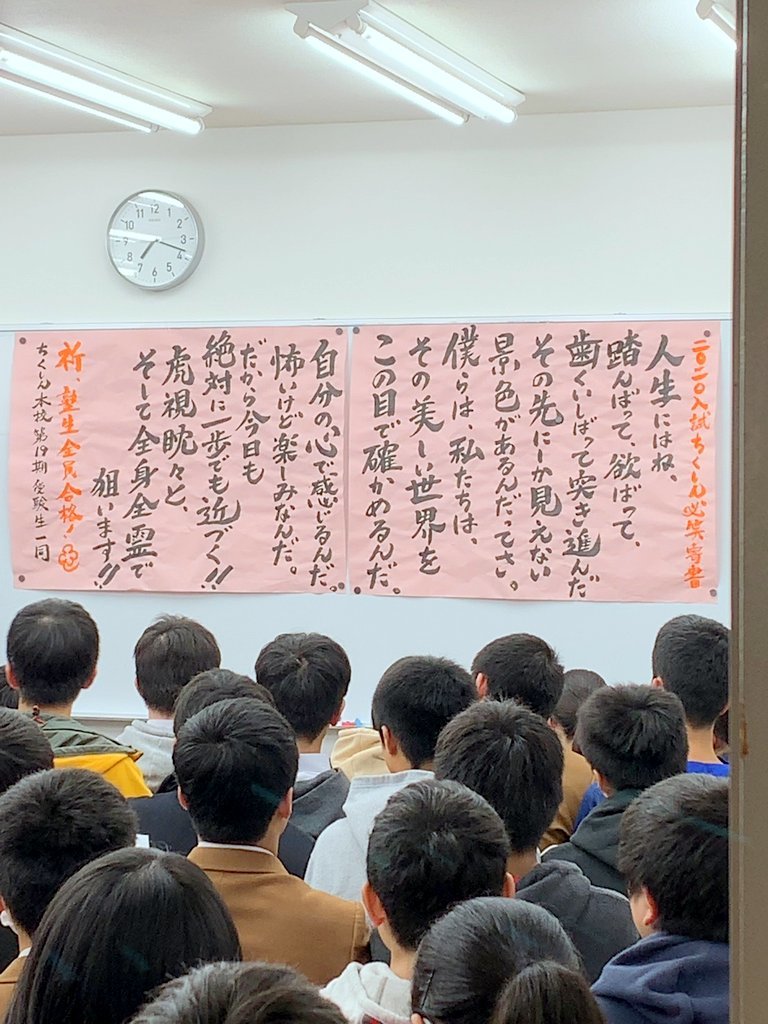 二〇二〇入試ちくしん必笑宣書
人生にはね、
踏んばって、欲ばって、
歯くいしばって突き進んだ
その先にしか見えない
景色があるんだってさ。
僕らは、私たちは、
その美しい世界を
この目で確かめるんだ。
自分の心で感じるんだ。
怖いけど楽しみなんだ。
だから今日も
絶対に一歩でも近づく!!
虎視眈々と、
そして全身全霊で
狙います!!
祈、塾生全員合格!
ちくしん本校第19期受験生一同
12
1
2
3
4
5
6
7
8
9
10
11